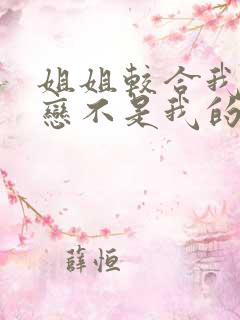 姐姐較合我
戀不是我的
薛恒